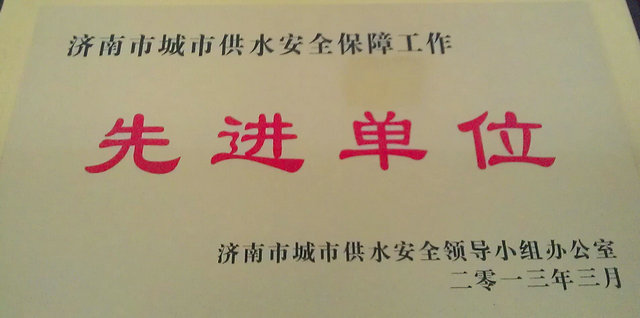 济南市城市供水安全保障工作
先进单位
济南市城市供水安全领导小组办公室
二零一三年三月